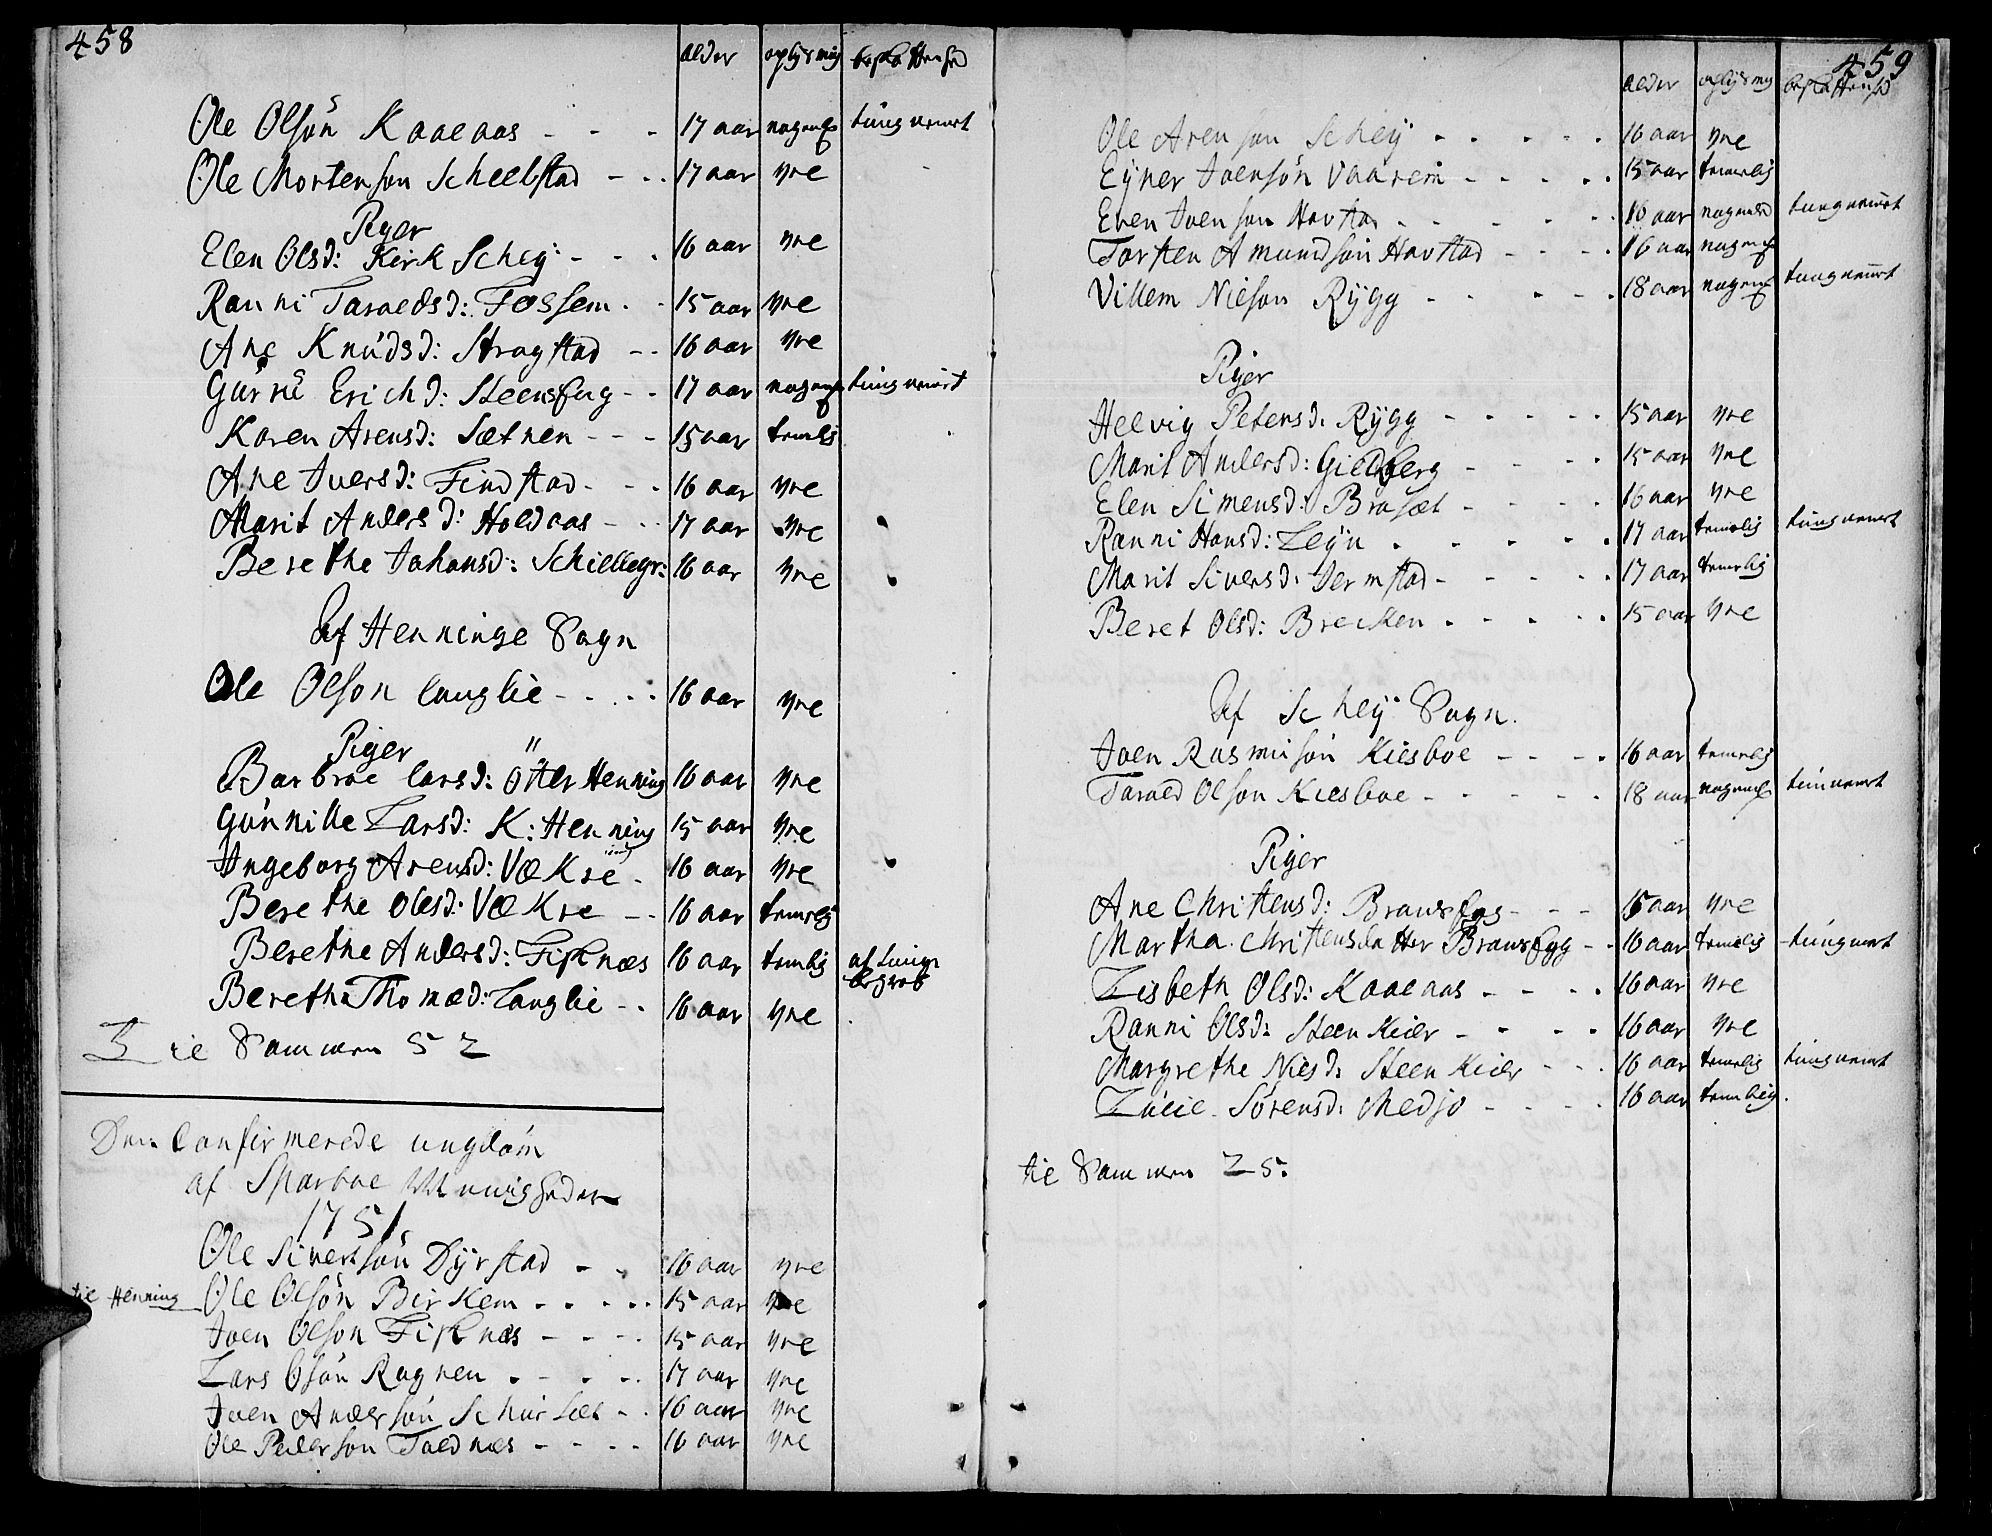 458
alder oplysning beskaffenhed
Ole Olsön Kaaeaas - - - 17 aar nogenl tungnemt
Ole Mortenson Scheelstad - - - 17 aar yre
Piger
Elen Olsd: Kirk Schey - - - 16 aar yre
Ranni Taraldsd: Fossem - - 15 aar yre
Ane Knudsd: Stragstad - - 16 aar yre
Gurne Erichd: Steensflag - - 17 aar nogenl tungnemt
Karen Arensd: Sætnen - - - 15 aar temlig
Ane Iversd: Findstad - - - 16 aar yre
Marit Andersd: Holdaas - - - 17 aar yre
Berethe Johansd: Schiellegr: 16 aar yre
Af Henninge Sogn
Ole Olson Langlie - - - - 16 aar yre
Piger
Barbroe Larsd: Öster Henning 16 aar yre
Gunnille Larsd: K: Henning 15 aar yre
Ingeborg Arensd: Vækre - 16 aar yre
Berethe Olesd: Vækre - - 16 aar temelig
Berethe Andersd: Fisknæs 16 aar temlig af tungt begreb
Berethe Thomæd: Langlie - - 16 aar yre
Tie Sammen 52
Den Confirmerede ungdom
af Sparboe Menigheder
1751
Ole Siverssön Dyrstad - - 16 aar yre
tie Henning Ole Olsön Birkem - - - - 15 aar yre
Joen Olson Fisknæs - - - - 15 aar yre
Lars Osön Ragnen - - - - 17 aar yre
Joen Anderssön Schirset - - 16 aar yre
Ole Pedersson Toldnæs - - - - 16 aar yre
459
alder oplysning beskaffenhed
Ole Arenson Schey - - - - - 16 aar yre
Eyner Joensön Vaarem - - - - - 15 aar temelig
Even Joenson Havstad - - - - - 16 aar nogenled tungnemt
Torsten Amundson Havstad - - - - 16 aar nogenl
Villem Nielson Rygg - - - - - 18 aar nogenl tungnemt
Piger
Helvig Petersd: Rygg - - - - - 15 aar yre
Marit Andersd: Gielberg - - - - 15 aar yre
Elen Simensd: Brasæt - - - - 16 aar yre
Ranni Hansd: Leyn - - - - - 17 aar temelig tungnemt
Marit Siversd: Jermstad - - - - - 17 aar temelig
Beret Olsd: Brecken - - - - - 15 aar yre
Af Schey Sogn.
Joen Rasmusön Kiesboe - - - - 16 aar temelig
Tarald Olson Kiesboe - - - - - 18 aar nogenl tungnemt
Piger
Ane Christensd: Bransfleg - - - 15 aar yre
Martha Christensdatter Bransflegg - - 16 aar temelig tungnemt
Lisbeth Olsd: Kaaeaas - - - - 16 aar yre
Ranni Olsd: Steenkier - - - - 16 aar yre
Margrethe Nielsd: Steenkier - - - 16 aar temelig tungnemt
Lucie Sörensd: Medjo - - - - 16 aar temelig
tie Sammen 25.